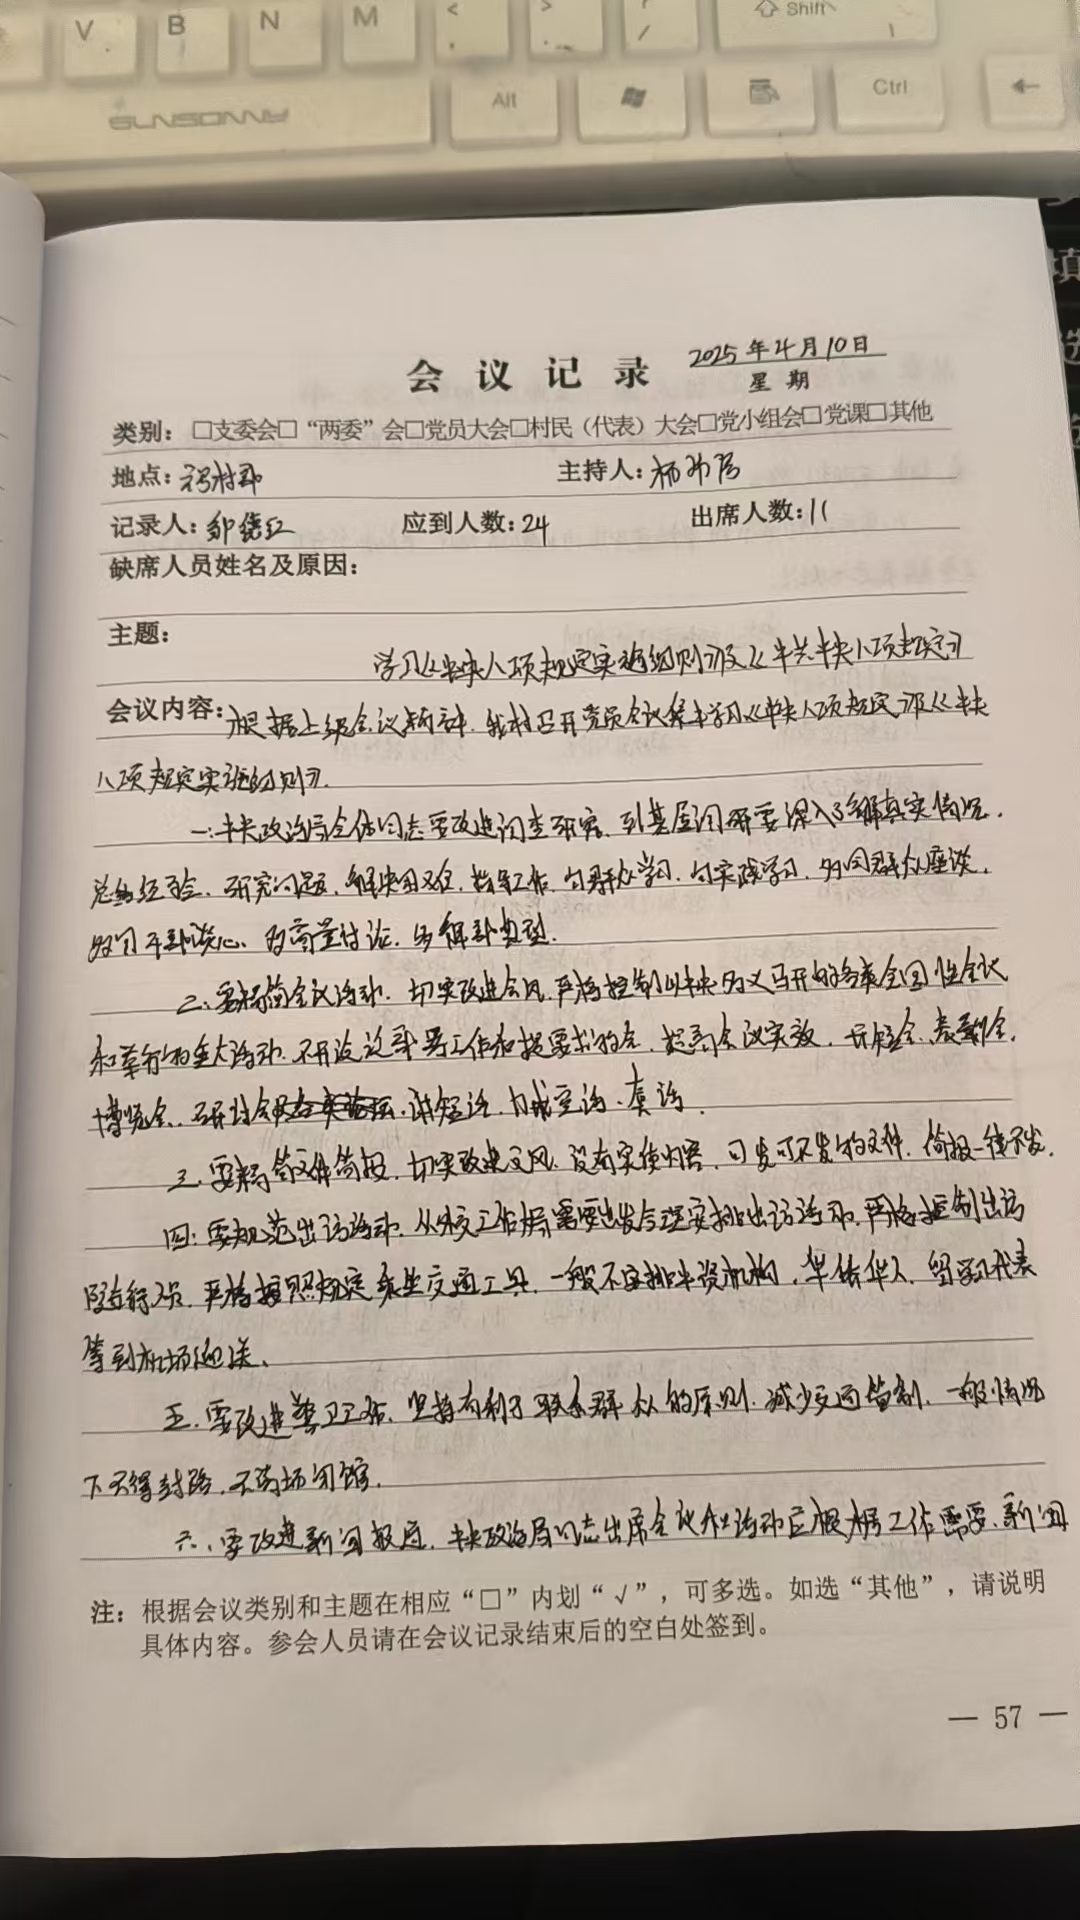 V B N M < > ? / Shift
SUNSONNY Alt Ctrl ←
会议记录 2025年4月10日
星期
类别：□支委会□“两委”会□党员大会□村民（代表）大会□党小组会□党课□其他
地点： 主持人：
记录人：邹 红 应到人数：24 出席人数：11
缺席人员姓名及原因：
主题：
学习《中央八项规定实施细则》及《中共中央八项规定》
会议内容：根据上级会议精神，我村召开党员会议集中学习《中央八项规定》及《中央
八项规定实施细则》。
一：中央政治局全体同志要改进调查研究，到基层调研要深入了解真实情况，
总结经验、研究问题、解决困难、指导工作，向群众学习、向实践学习，多同群众座谈，
多同干部谈心、多商量讨论，多解剖典型。
二：要精简会议活动，切实改进会风，严格控制以中央名义召开的各类全国性会议
和举行的重大活动，不开泛泛部署工作和提要求的会，提高会议实效，开短会、
博览会、研讨会，讲短话，力戒空话、套话。
三：要精简文件简报，切实改进文风，没有实质内容，可发可不发的文件、简报一律不发。
四：要规范出访活动，从外交工作 需要出发合理安排出访活动，严格控制出访
随行人员，严格按照规定乘坐交通工具，一般不安排中资机构、华侨华人、留学 代表
等到机场迎送。
五：要改进警卫工作，坚持有利于联系群众的原则，减少交通管制，一般情况
下不得封路，不清场闭馆。
六：要改进新闻报道，中央政治局同志出席会议和活动应根据工作需要、新闻
注：根据会议类别和主题在相应“□”内划“√”，可多选。如选“其他”，请说明
具体内容。参会人员请在会议记录结束后的空白处签到。
— 57 —